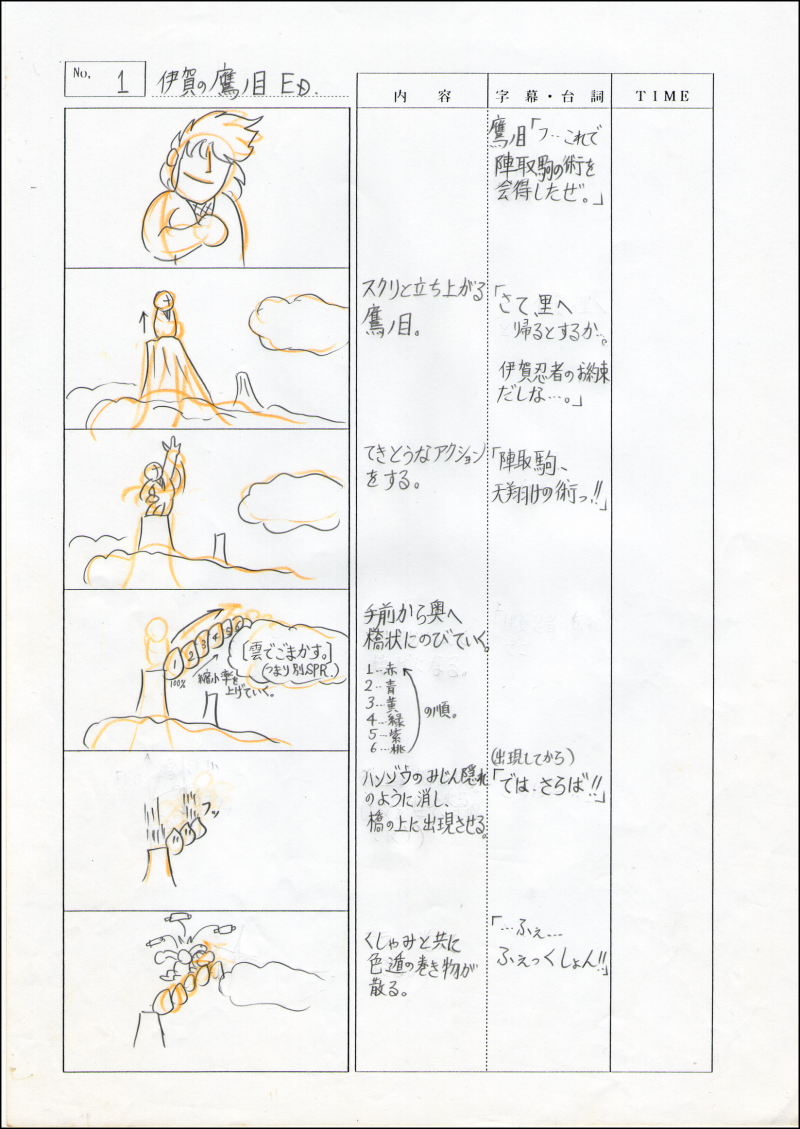 No. 1
伊賀の鷹ノ目 ED.
内容
字幕・台詞
TIME
鷹ノ目「フ…これで
陣取駒の術を
会得したぜ。」
スクリと立ち上がる
鷹ノ目。
「さて、里へ
帰るとするか…。
伊賀忍者のお約束
だしな…。」
てきとうなアクション
をする。
「陣取駒、
天翔けの術っ!!」
1 2 3 4 5 6
[雲でごまかす。]
(つまり別SPR.)
100%
縮小率を
上げていく。
手前から奥へ
橋状にのびていく。
1…赤
2…青
3…黄
4…緑
5…紫
6…桃
の順。
フッ
ハンゾウのみじん隠れ
のように消し、
橋の上に出現させる。
(出現してから)
「では、さらば!!」
くしゃみと共に
色遁の巻き物が
散る。
「…ふぇ…
ふぇっくしょん!!」